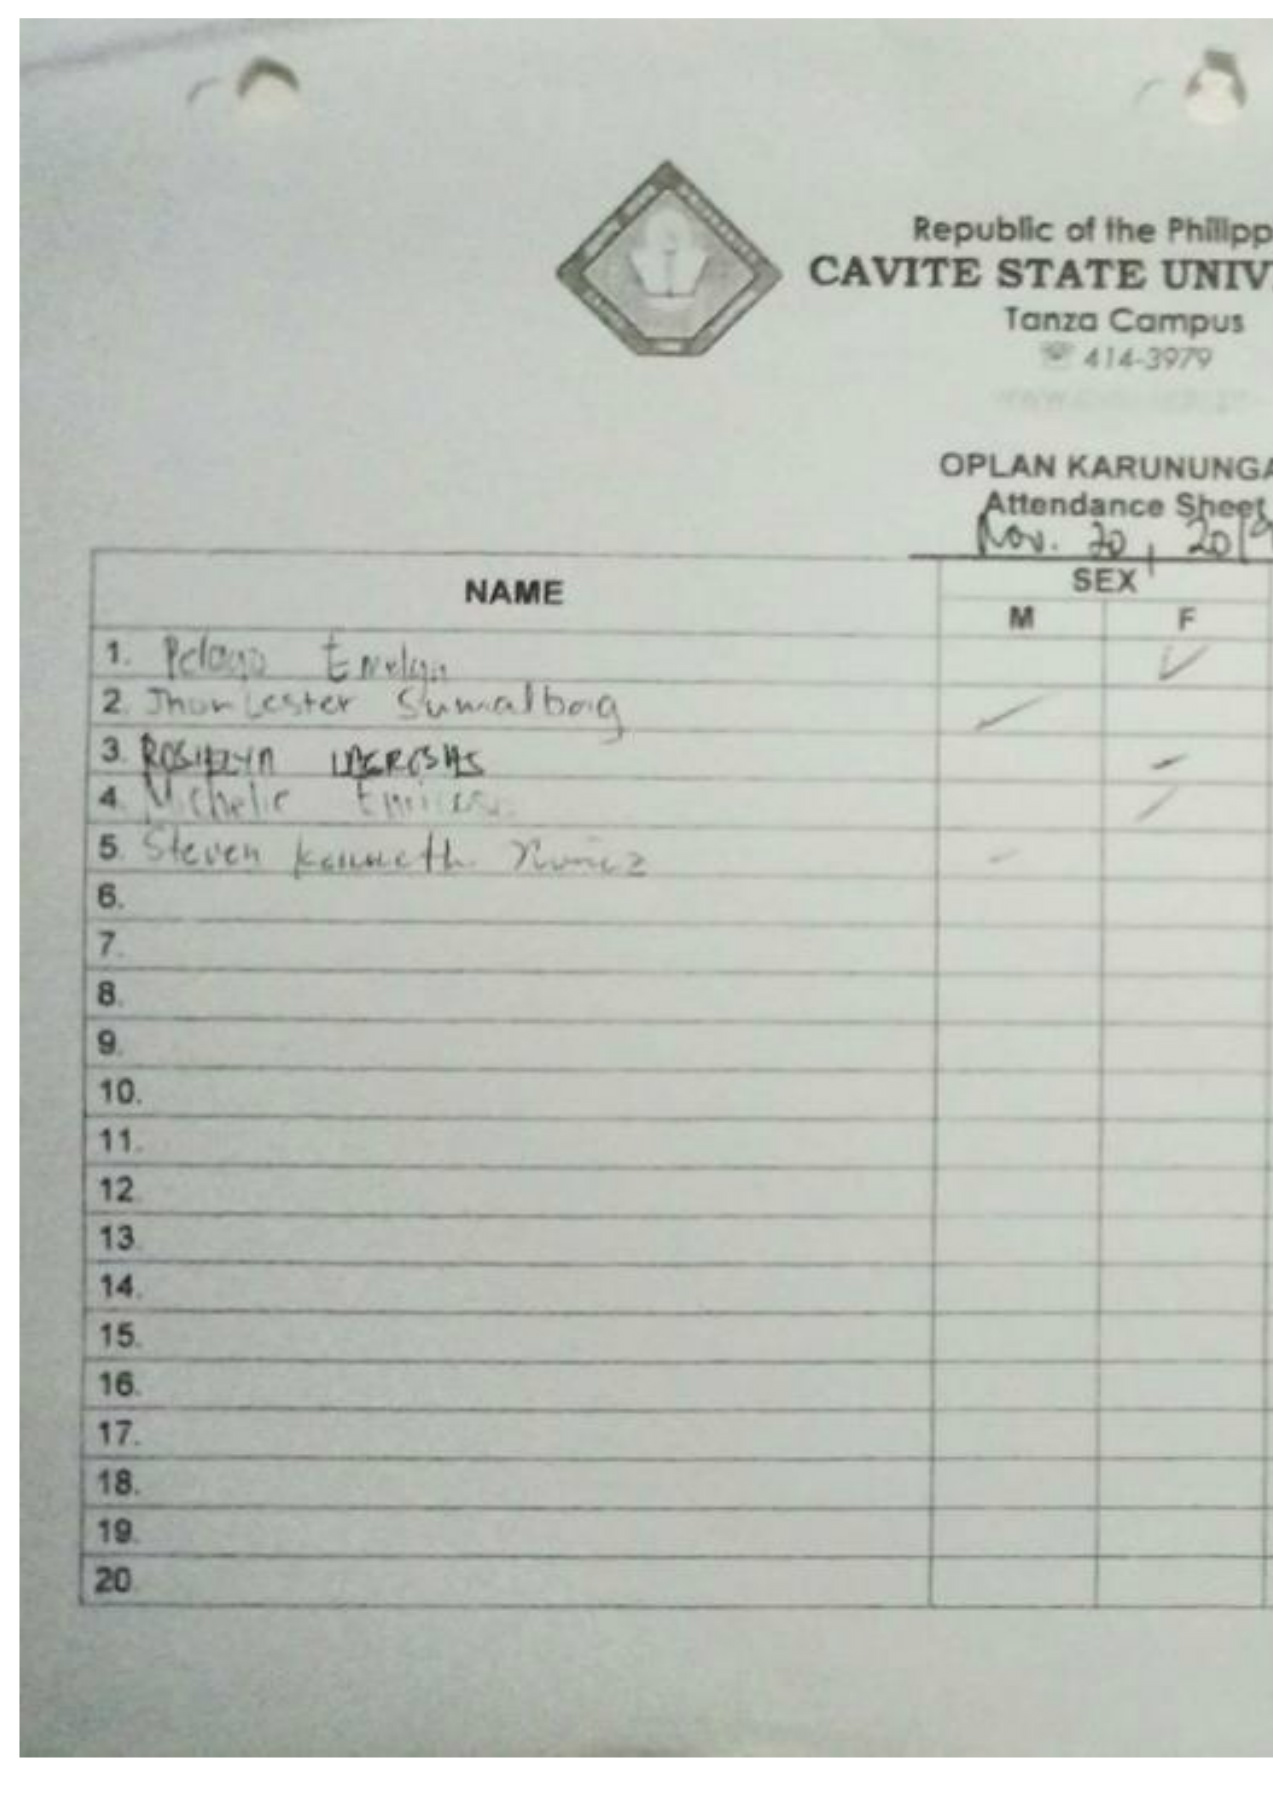 Republic of the Philipp
CAVITE STATE UNIV
Tanza Campus
☏ 414-3979
OPLAN KARUNUNGA
Attendance Sheet
Nov. 20, 2019
NAME SEX
M F
1. Pelayo Evelyn ✓
2. Jhon Lester Sumalbag ✓
3.
4. Michelle
5. Steven Kenneth Nuñez
6.
7.
8.
9.
10.
11.
12.
13.
14.
15.
16.
17.
18.
19.
20.